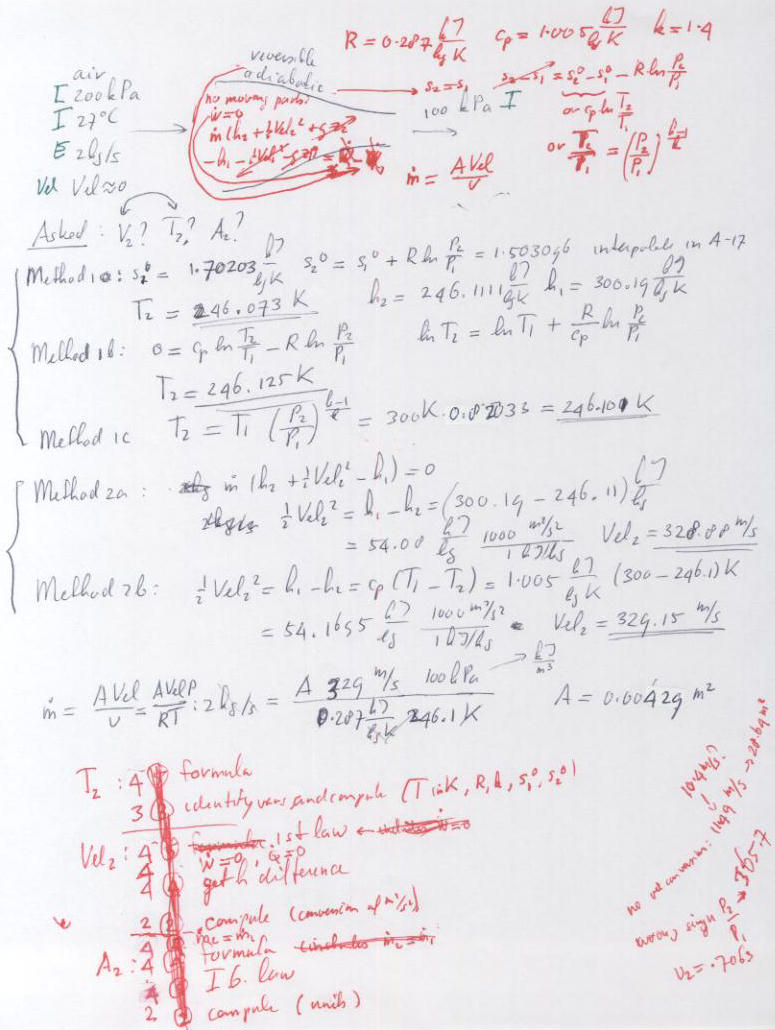 R = 0.287 kJ/kg K   cp = 1.005 kJ/kg K   k = 1.4
air
I 200 kPa
I 27°C
E 2 kg/s
Vel Vel ≈ 0
reversible
adiabatic
→ s2 = s1
s2 - s1 = s2° - s1° - R ln P2/P1
or cp ln T2/T1
or T2/T1 = (P2/P1)^(k-1)/k
no moving parts:
ẇ = 0
ṁ(h2 + ½Vel2² + gz2
- h1 - ½Vel1² - gz1) = Q̇ - Ẇ
100 kPa I
ṁ = A Vel/v
Asked: V2? T2? A2?
Method 1a: s1° = 1.70203 kJ/kg K   s2° = s1° + R ln P2/P1 = 1.503096   interpolate in A-17
T2 = 246.073 K   h2 = 246.1111 kJ/kg K   h1 = 300.19 kJ/kg K
Method 1b: 0 = cp ln T2/T1 - R ln P2/P1   ln T2 = ln T1 + R/cp ln P2/P1
T2 = 246.125 K
Method 1c   T2 = T1 (P2/P1)^(k-1)/k = 300K · 0.82033 = 246.101 K
Method 2a: ṁ (h2 + ½Vel2² - h1) = 0
½Vel2² = h1 - h2 = (300.19 - 246.11) kJ/kg
= 54.08 kJ/kg 1000 m²/s²/1 kJ/kg   Vel2 = 328.88 m/s
Method 2b: ½Vel2² = h1 - h2 = cp (T1 - T2) = 1.005 kJ/kg K (300 - 246.1) K
= 54.1695 kJ/kg 1000 m²/s²/1 kJ/kg   Vel2 = 329.15 m/s
ṁ = A Vel/v = A Vel P/RT : 2 kg/s = A 329 m/s 100 kPa → kJ/m³ / 0.287 kJ/kg K 246.1 K   A = 0.00429 m²
T2: 4 formula
3 identify vars and compute (T in K, R, k, s1°, s2°)
Vel2: 4 1st law ←
4 ẇ = 0, Q = 0
4 get h difference
2 compute (conversion of m²/s²)
4 ṁ2 = ṁ1
A2: 4 formula includes ṁ2 = ṁ1
4 I G. law
2 compute (units)
10.4 m/s?
no vel conversion: m/s → 28.69 m²
wrong sign P2/P1 → 365.7
v2 = .7063